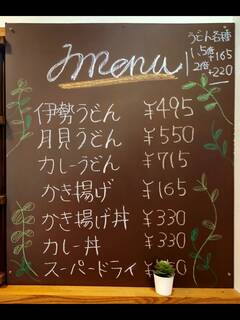 menu
うどん各種
1.5倍+165
2倍+220
伊勢うどん ¥495
月見うどん ¥550
カレーうどん ¥715
かき揚げ ¥165
かき揚げ丼 ¥330
カレー丼 ¥330
スーパードライ